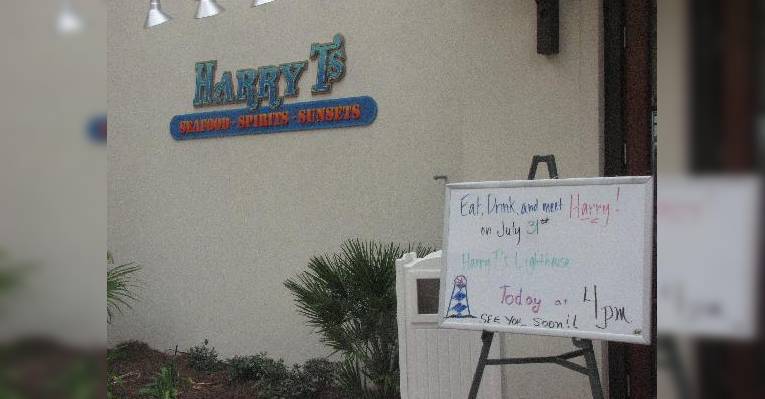 HARRY T's
SEAFOOD · SPIRITS · SUNSETS
Eat, Drink, and meet Harry!
on July 31st
Harry T's Lighthouse
Today at 4pm
SEE YOU SOON!!